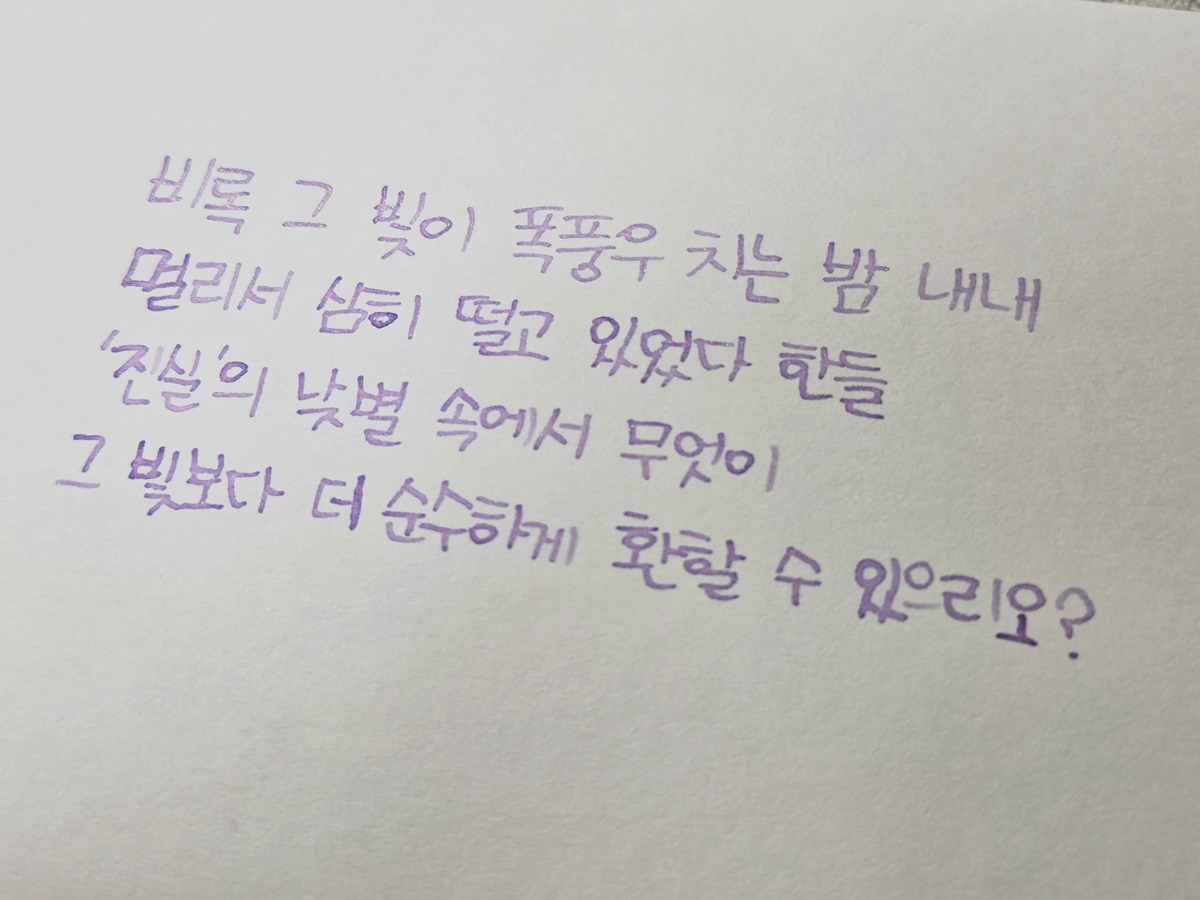 비록 그 빛이 폭풍우 치는 밤 내내
멀리서 심히 떨고 있었다 한들
'진실'의 낮별 속에서 무엇이
그 빛보다 더 순수하게 환할 수 있으리오?